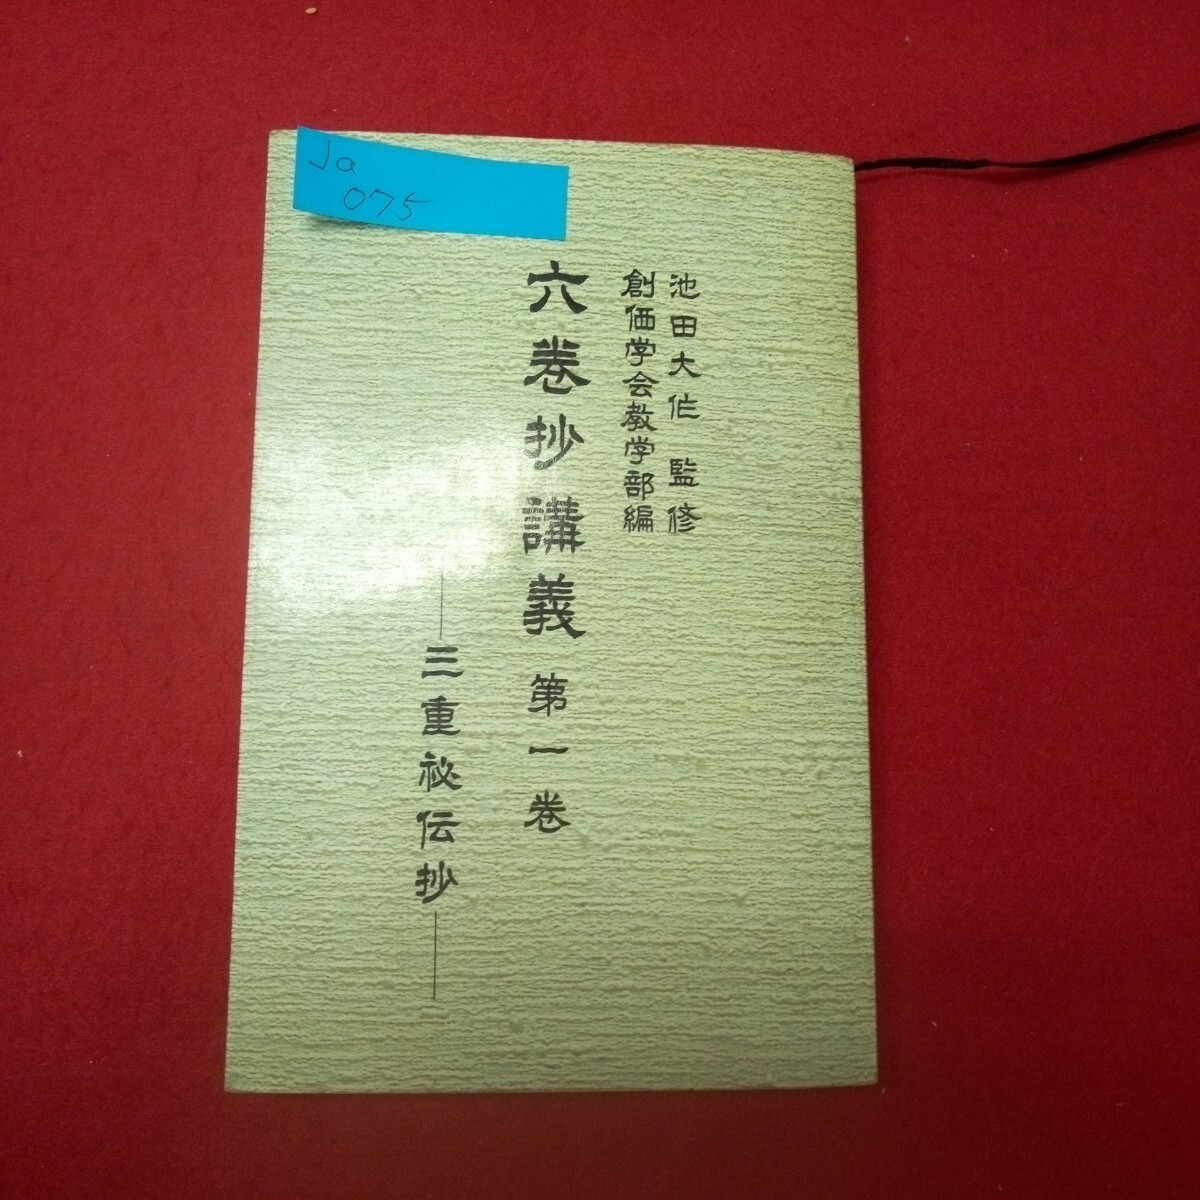 Ja
075
池田大作 監修
創価学会教学部編
六巻抄講義 第一巻
三重祕伝抄